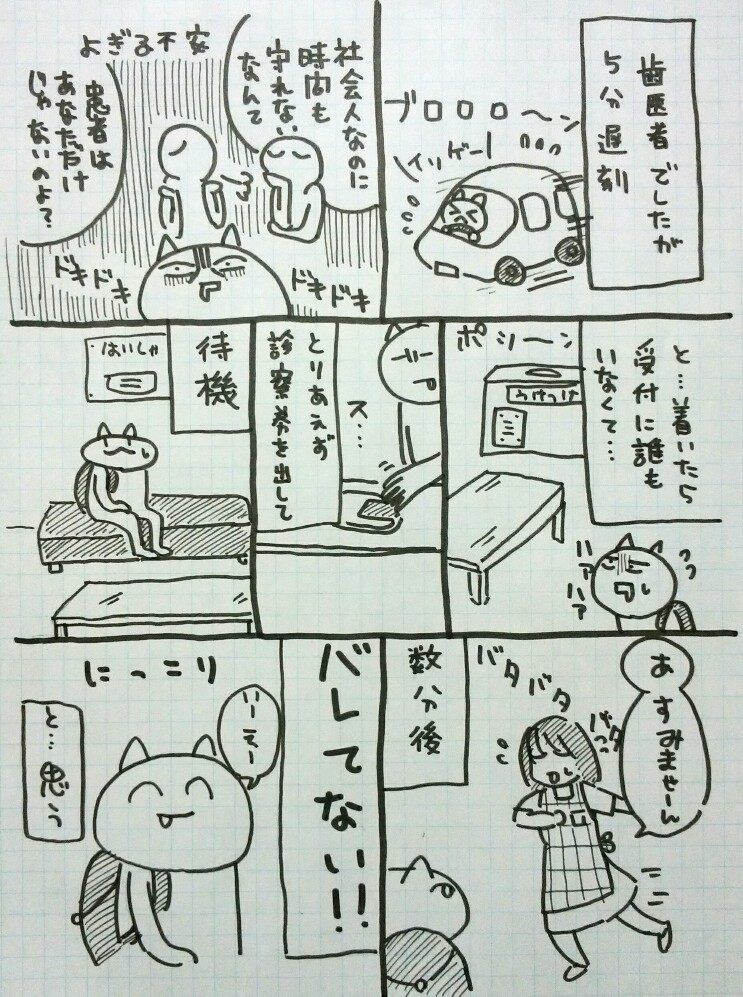 歯医者でしたが
5分遅刻
ブロロロ〜ン
イソゲー!
よぎる不安
社会人なのに
時間も
守れない
なんて
患者は
あなただけ
じゃないのよ?
ドキドキ
ドキドキ
と…着いたら
受付に誰も
いなくて…
ポシーン
うけつけ
ハアハア
とりあえず
診察券を出して
ス…
待機
はいしゃ
あ すみませーん
バタバタ
バタ
数分後
バレてない!!
いーえー
にっこり
と…思う